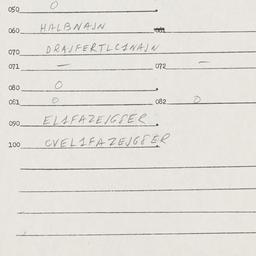 050 O
060 HALBNAJN 061
070 DRAJFERTLCINAJN
071 — 072 —
080 O
081 O 082 O
090 EL1FAZEJGSER
100 CVEL1FAZEJGSER